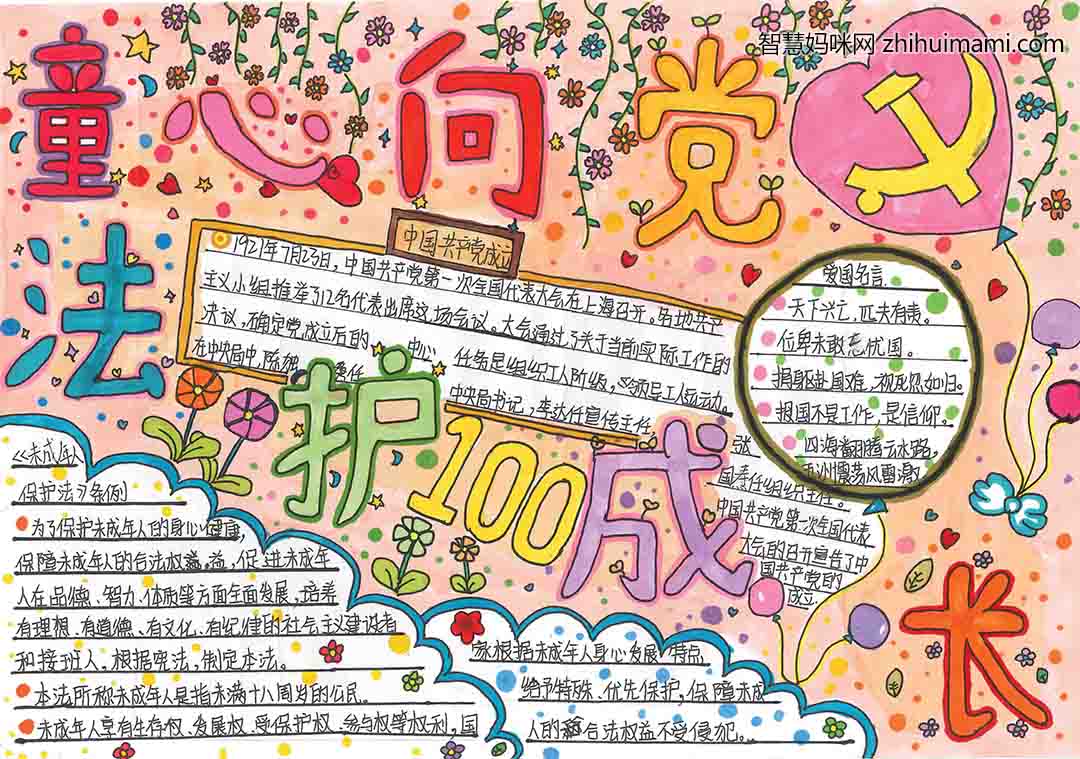 智慧妈咪网 zhihuimami.com
童心向党
法护100成长
中国共产党成立
1921年7月23日,中国共产党第一次全国代表大会在上海召开。各地共产
主义小组推举了12名代表出席这场会议。大会通过了关于当前实际工作的
决议,确定党成立后的 中心 任务是组织工人阶级,领导工人运动。
在中央局中,陈独 委任 中央局书记,李达任宣传主任,
张
国焘任组织主任。
中国共产党第一次全国代表
大会的召开宣告了中
国共产党的
成立
爱国名言
天下兴亡,匹夫有责。
位卑未敢忘忧国。
捐躯赴国难,视死忽如归。
报国不是工作,是信仰。
四海翻腾云水怒,
五洲震荡风雷激。
《未成年人
保护法》条例
为了保护未成年人的身心健康,
保障未成年人的合法权益,促进未成年
人在品德、智力、体质等方面全面发展,培养
有理想、有道德、有文化、有纪律的社会主义建设者
和接班人,根据宪法,制定本法。
本法所称未成年人是指未满十八周岁的公民。
未成年人享有生存权、发展权、受保护权、参与权等权利,国
家根据未成年人身心发展特点
给予特殊、优先保护,保障未成
人的合法权益不受侵犯。